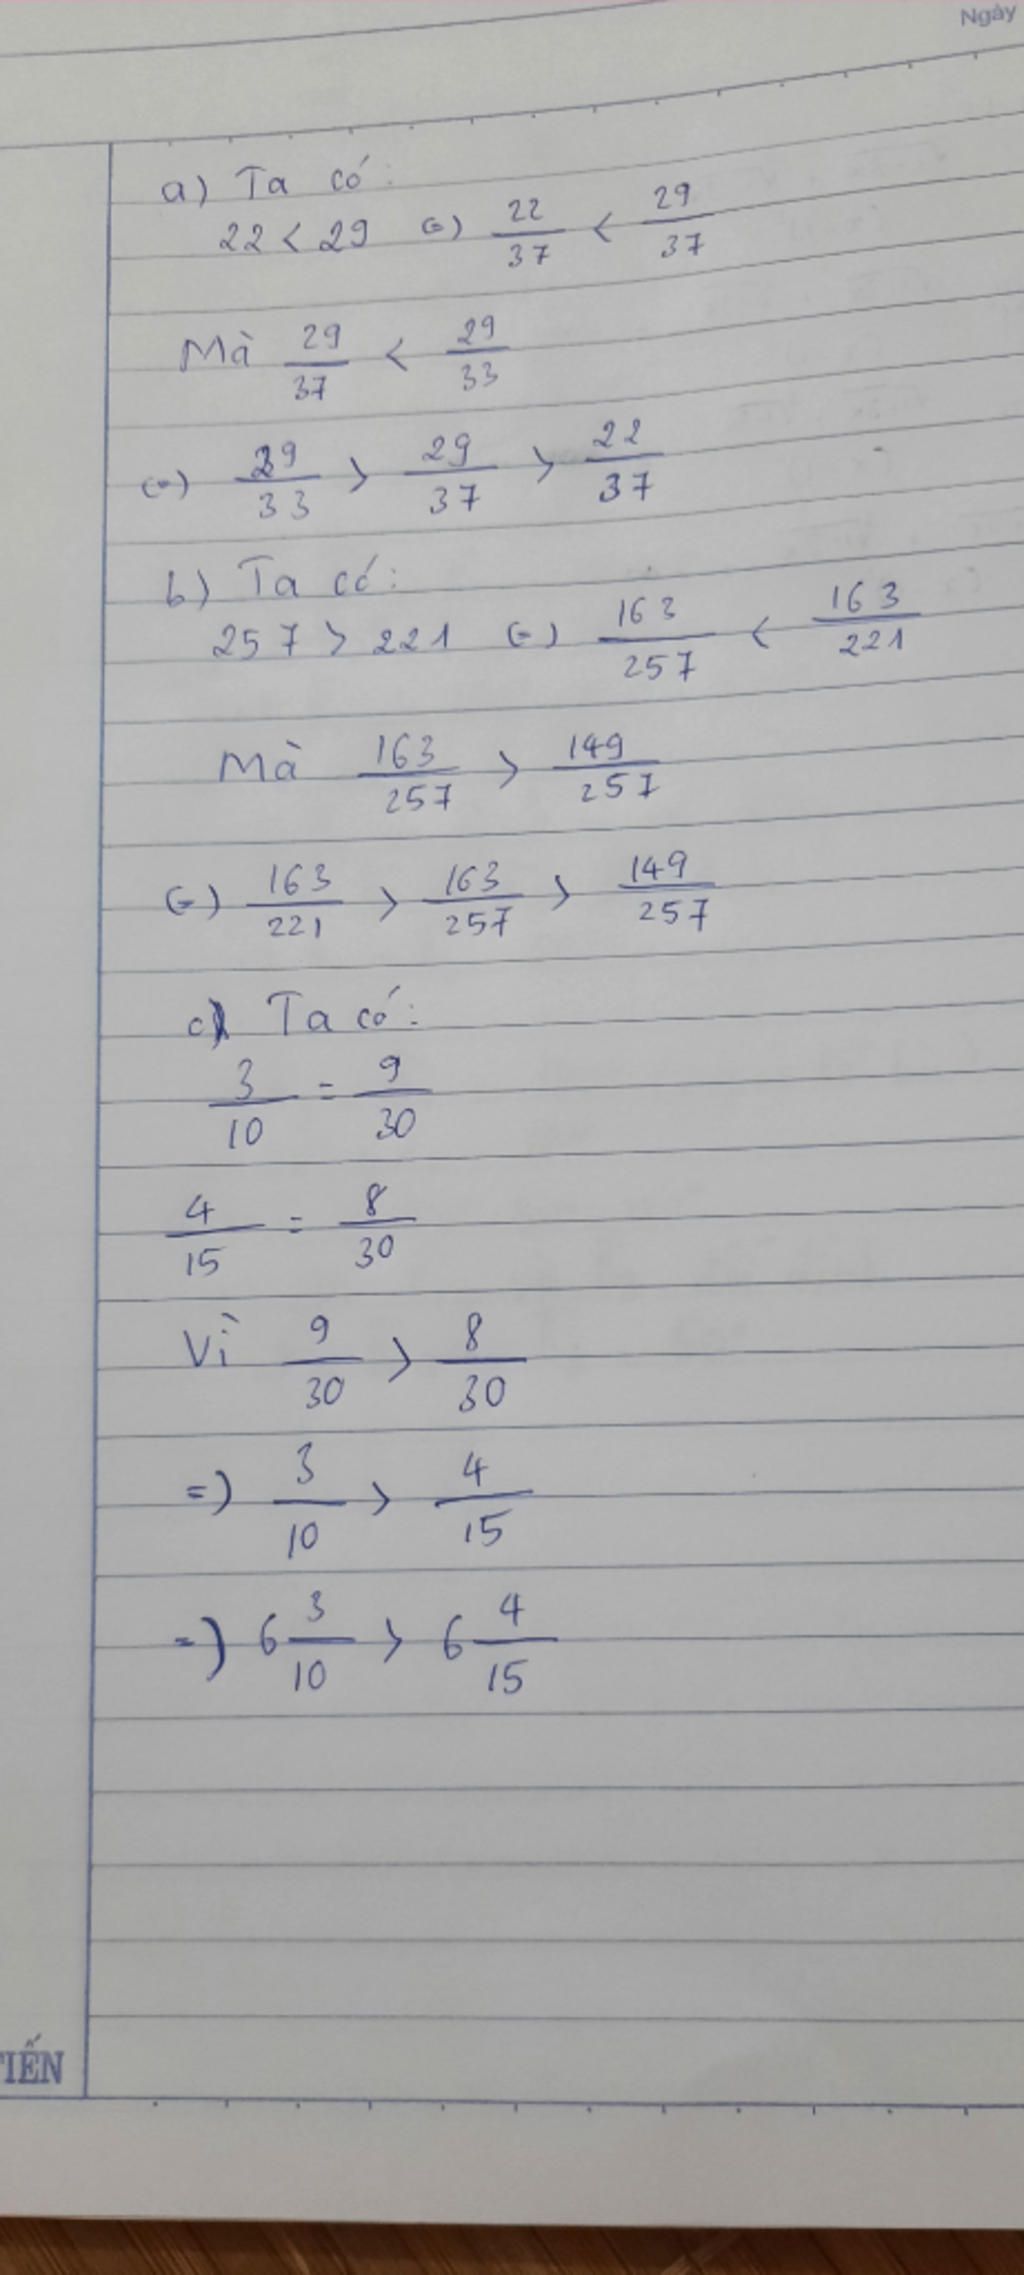 Ngày
a) Ta có:
22 < 29 (=) 22/37 < 29/37
Mà 29/37 < 29/33
(=) 29/33 > 29/37 > 22/37
b) Ta có:
257 > 221 (=) 163/257 < 163/221
Mà 163/257 > 149/257
(=) 163/221 > 163/257 > 149/257
c) Ta có:
3/10 = 9/30
4/15 = 8/30
Vì 9/30 > 8/30
=) 3/10 > 4/15
=) 6 3/10 > 6 4/15
TIẾN